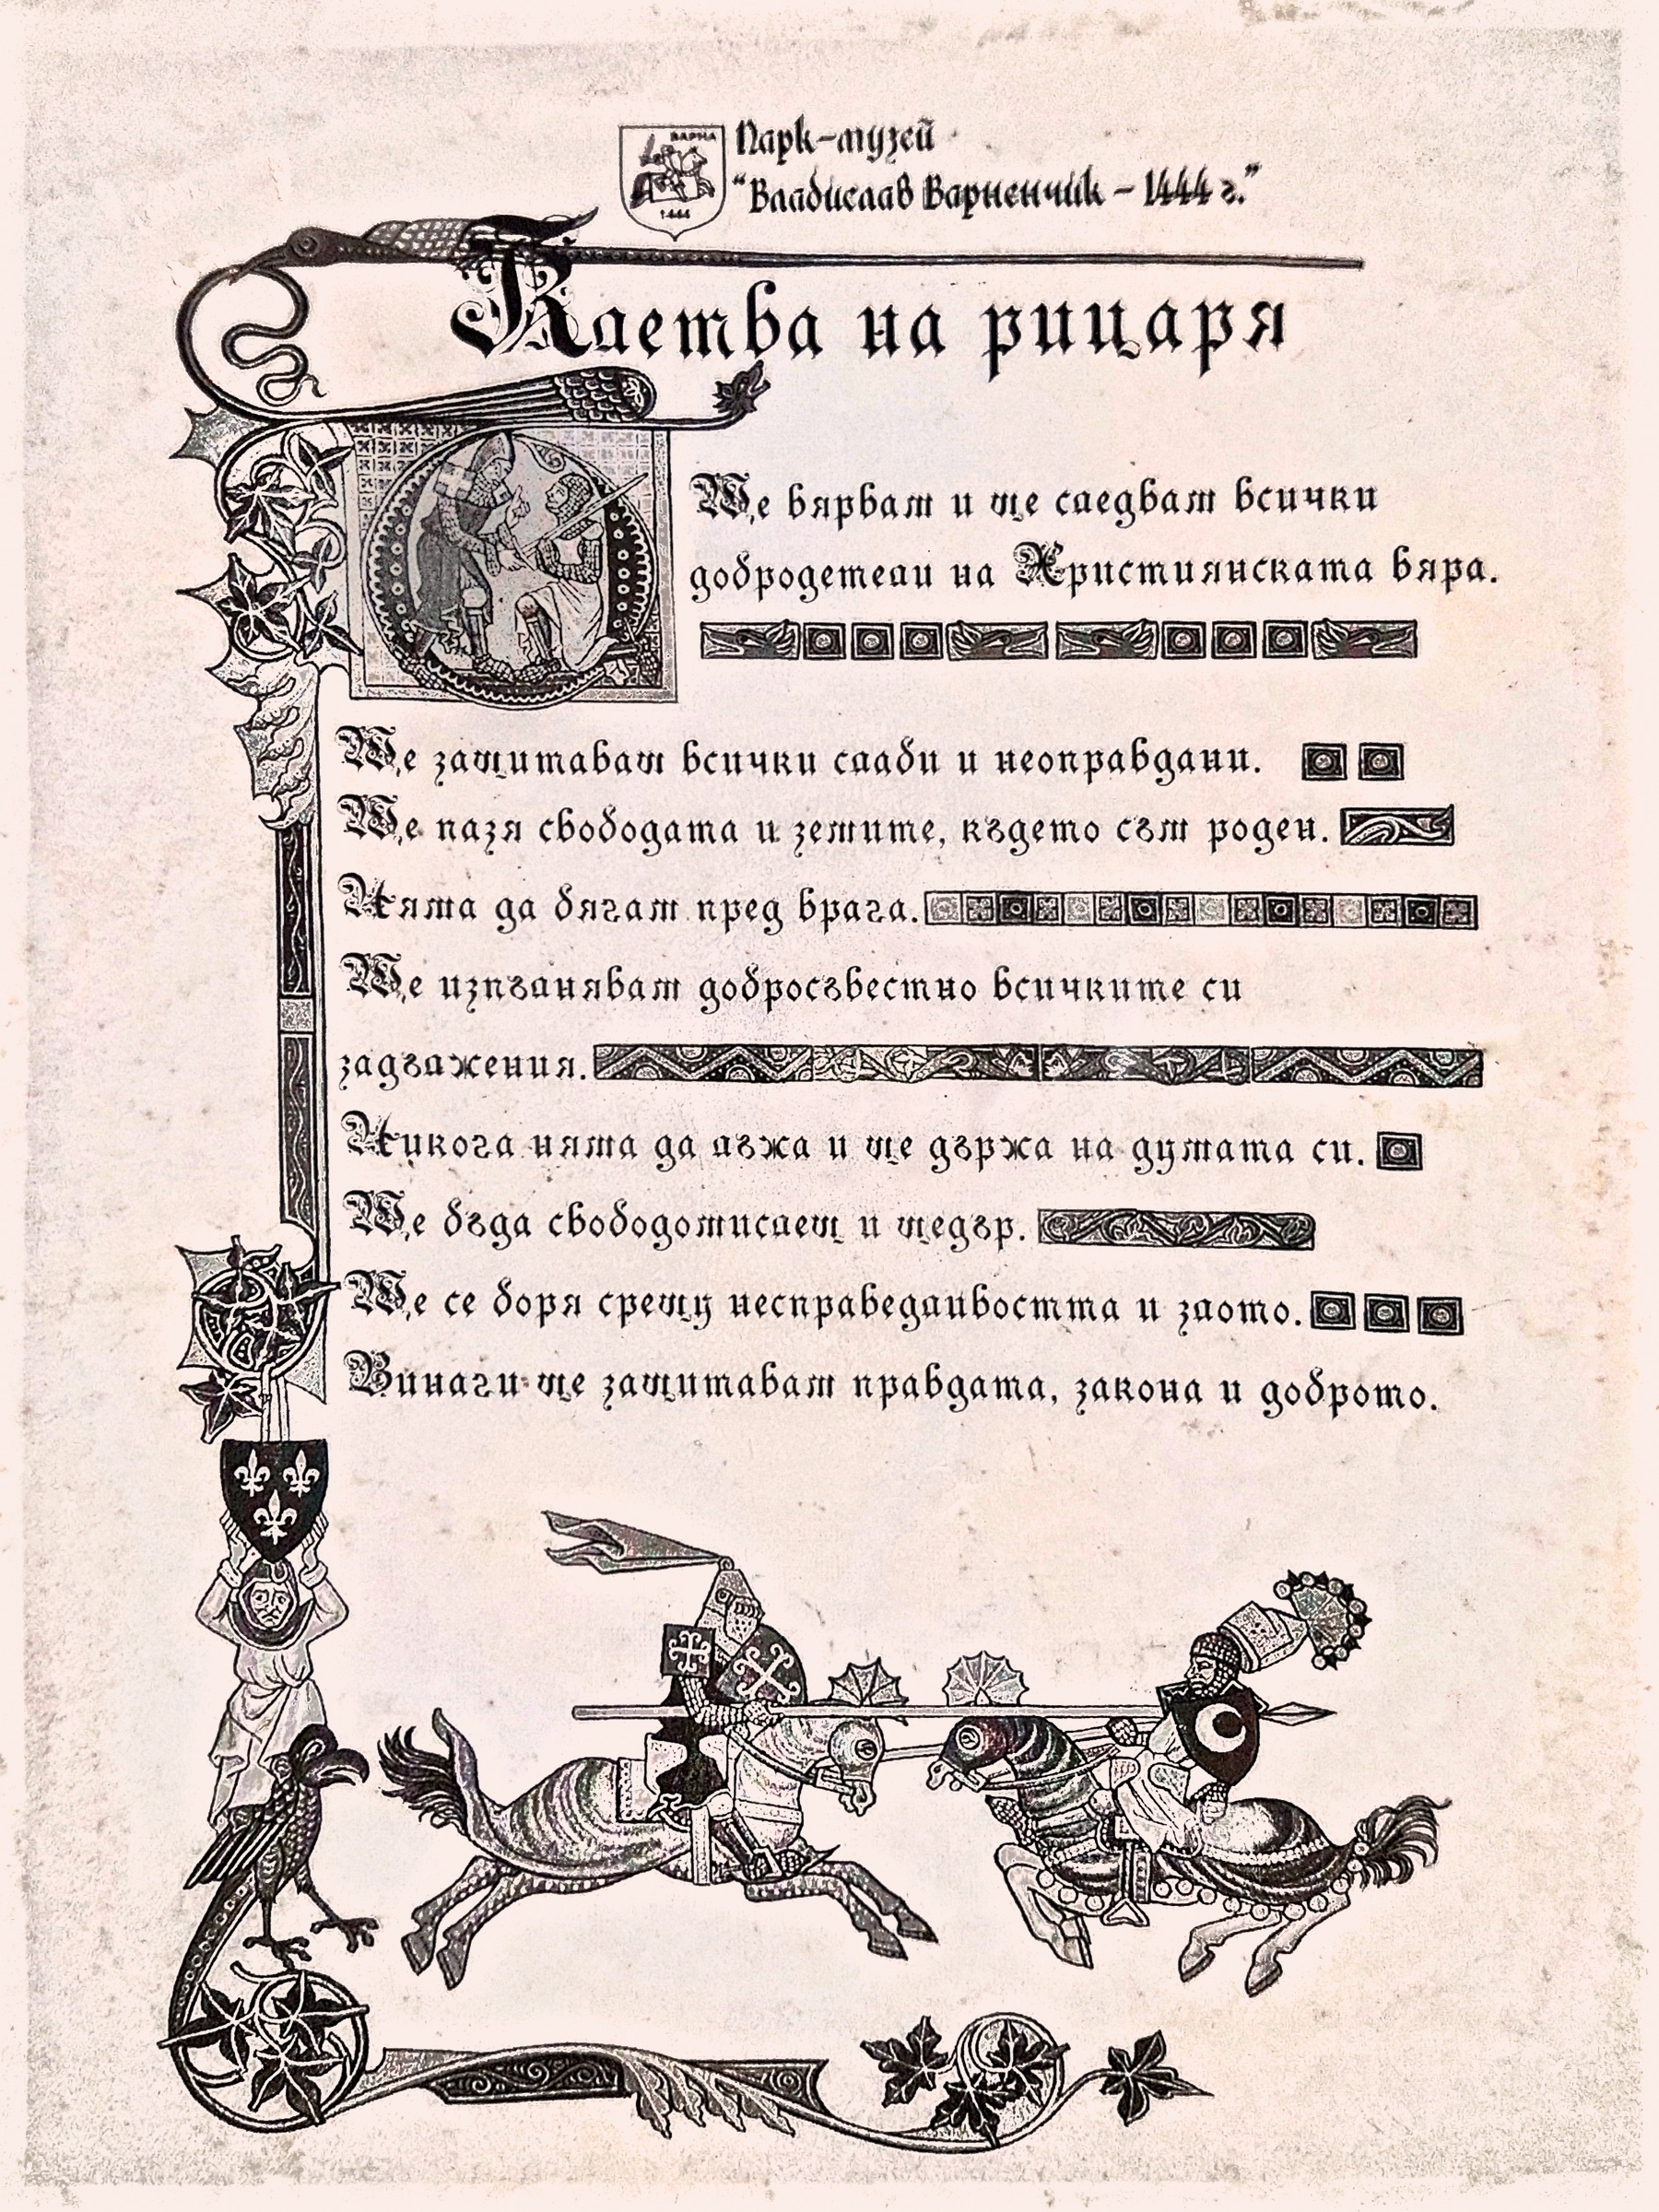 ВАРНА
1444
Парк-музей
"Владислав Варненчик - 1444 г."
Клетва на рицаря
Ще вярвам и ще следвам всички
добродетели на Християнската вяра.
Ще защитавам всички слаби и неоправдани.
Ще пазя свободата и земите, където съм роден.
Няма да бягам пред врага.
Ще изпълнявам добросъвестно всичките си
задължения.
Никога няма да лъжа и ще държа на думата си.
Ще бъда свободомислещ и щедър.
Ще се боря срещу несправедливостта и злото.
Винаги ще защитавам правдата, закона и доброто.